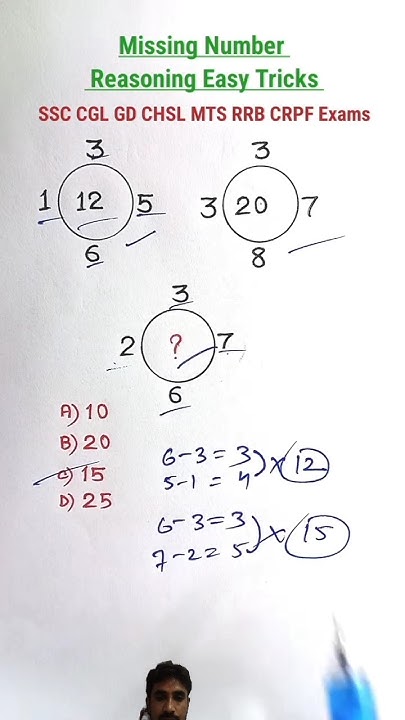 Missing Number
Reasoning Easy Tricks
SSC CGL GD CHSL MTS RRB CRPF Exams
3
1 12 5
6
3
3 20 7
8
3
2 ? 7
6
A) 10
B) 20
C) 15
D) 25
6-3=3
5-1=4
× 12
6-3=3
7-2=5
× 15